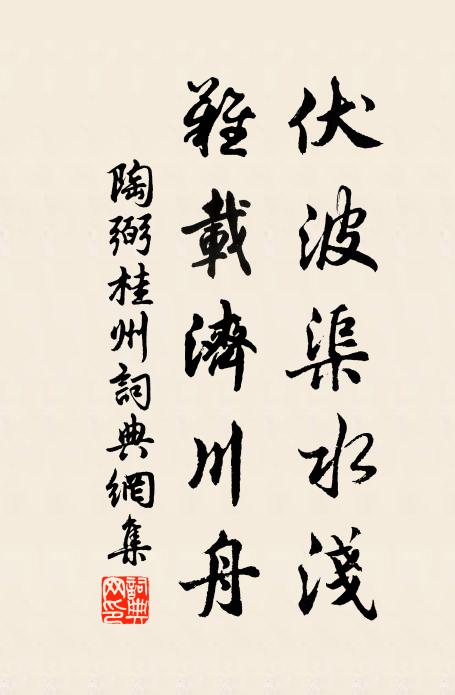 伏波渠水淺
難載濟川舟
陶弼桂州詞典網集